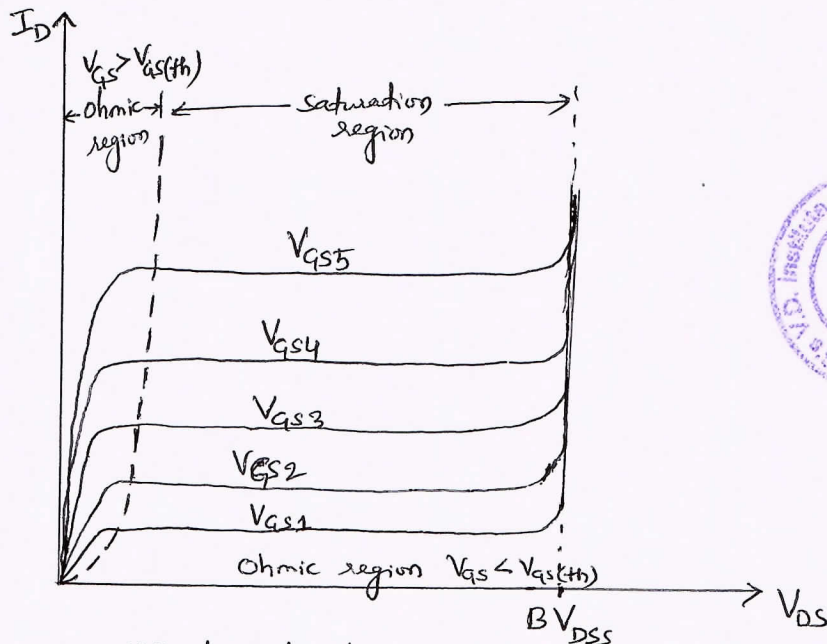 I_D
V_GS > V_GS(th)
Ohmic
region
saturation
region
V_GS5
V_GS4
V_GS3
V_GS2
V_GS1
Ohmic region V_GS < V_GS(th)
B V_DSS
V_DS
V.D. Institute